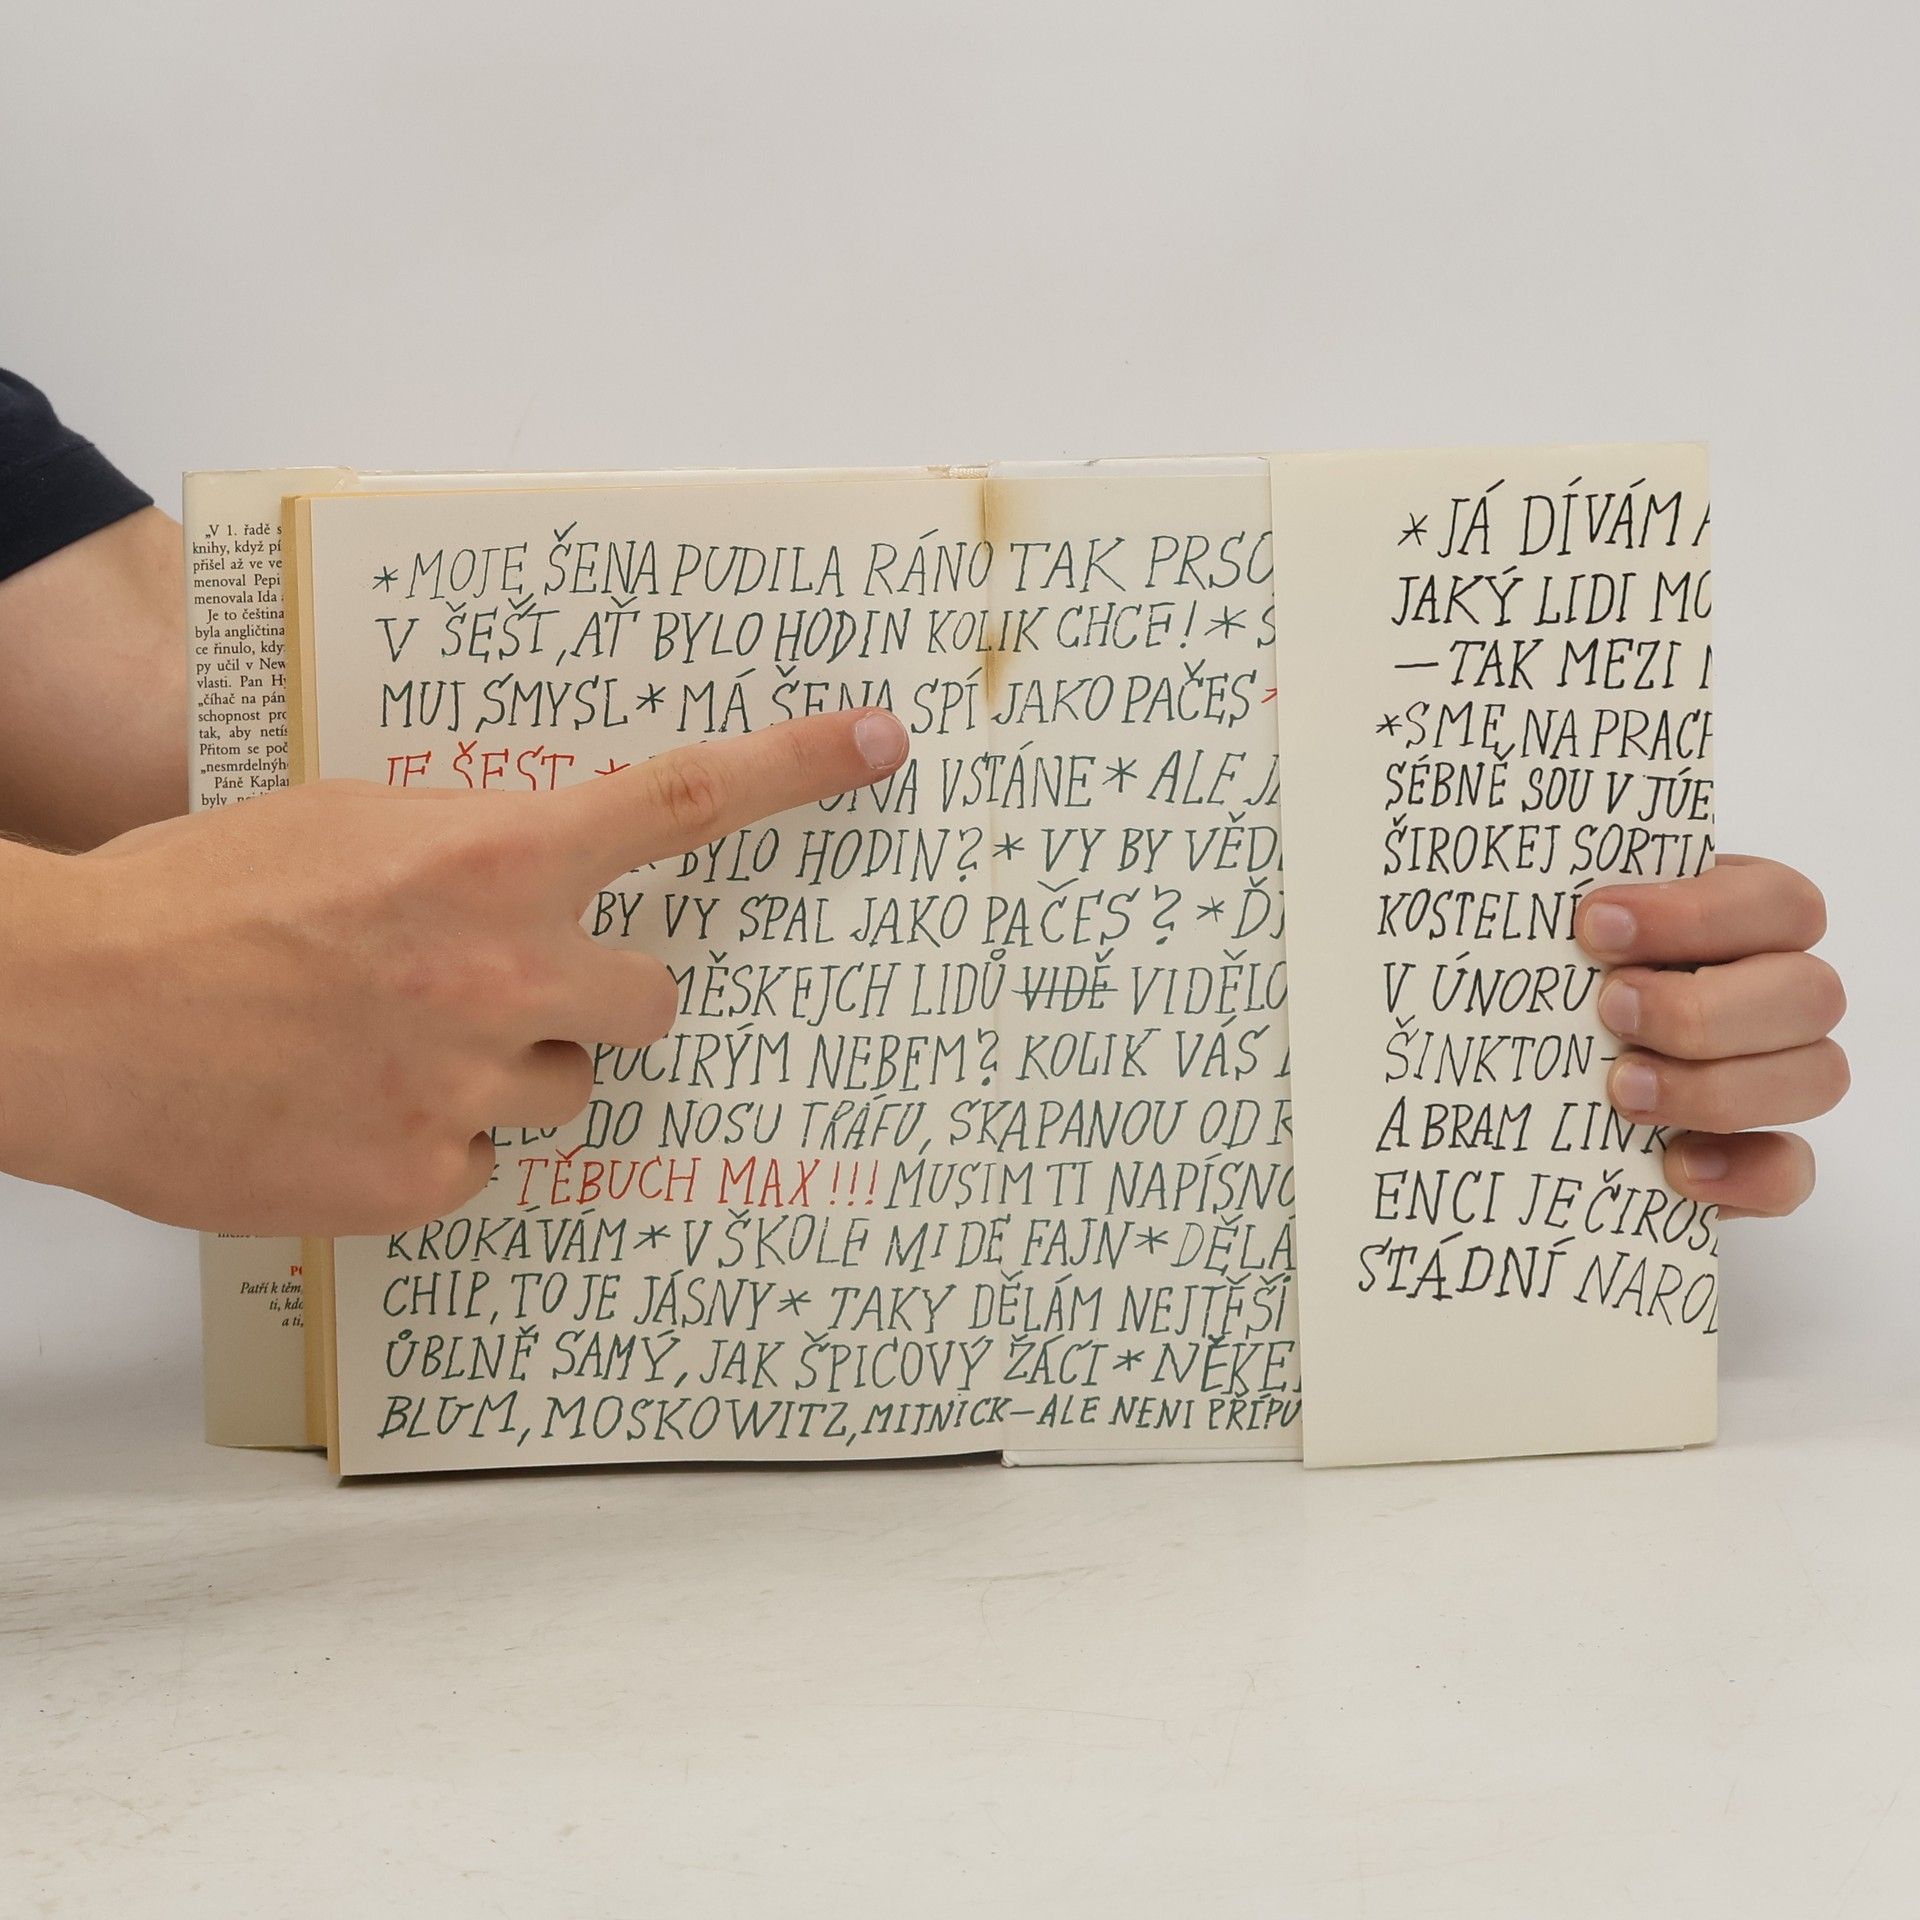 „V 1. řadě s
knihy, když pí
přišel až ve ve
menoval Pepi
menovala Ida
Je to čeština
byla angličtina
ce řinulo, kdy
py učil v New
vlasti. Pan Hy
„číhač na pán
schopnost pro
tak, aby netís
Přitom se poč
„nesmrdelnýh
Páně Kaplan
byly
Patří k těm
ti, kdo
a ti,
*MOJE ŠENA PUDILA RÁNO TAK PRSC
V ŠEŠT, AŤ BYLO HODIN KOLIK CHCE! * S
MUJ SMYSL * MÁ ŠENA SPÍ JAKO PAČES *
JE ŠEST *
VSTÁNE * ALE JÁ
BYLO HODIN? * VY BY VĚD
BY VY SPAL JAKO PAČES? * Ď
MĚSKEJCH LIDŮ VIDĚ VIDĚLO
POCIRÝM NEBEM? KOLIK VÁS
DO NOSU TRÁFU, SKAPANOU OD K
TĚBUCH MAX!!! MUSIM TI NAPÍSNO
KROKÁVÁM * V ŠKOLE MI DE FAJN * DĚLÁ
CHIP, TO JE JÁSNY * TAKY DĚLÁM NEJTĚŠÍ
ŮBLNĚ SAMÝ, JAK ŠPICOVÝ ŽÁCI * NĚKE
BLUM, MOSKOWITZ, MITNICK–ALE NENI PŘÍPU
*JÁ DÍVÁM A
JAKÝ LIDI MO
–TAK MEZI
*SME NA PRACH
SÉBNĚ SOU V JÚE
ŠIROKEJ SORTIM
KOSTELNÍ
V ÚNORU
ŠINKTON–
ABRAM LINK
ENCI JE ČIROS
STÁDNÍ NAROD